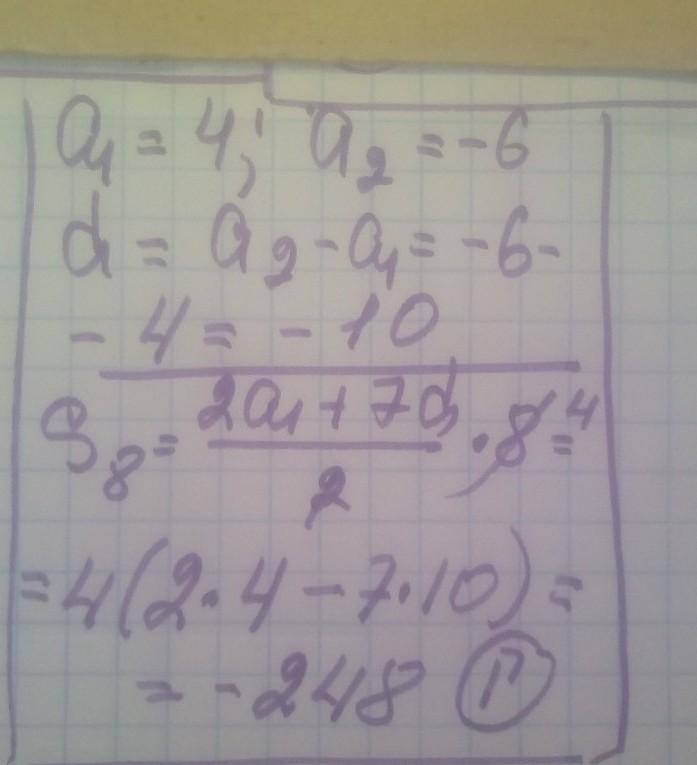 a₁ = 4; a₂ = -6
d = a₂ - a₁ = -6 -
- 4 = - 10
S₈ = (2a₁ + 7d)/2 · 8 = 4
= 4(2·4 - 7·10) =
= -248 Г